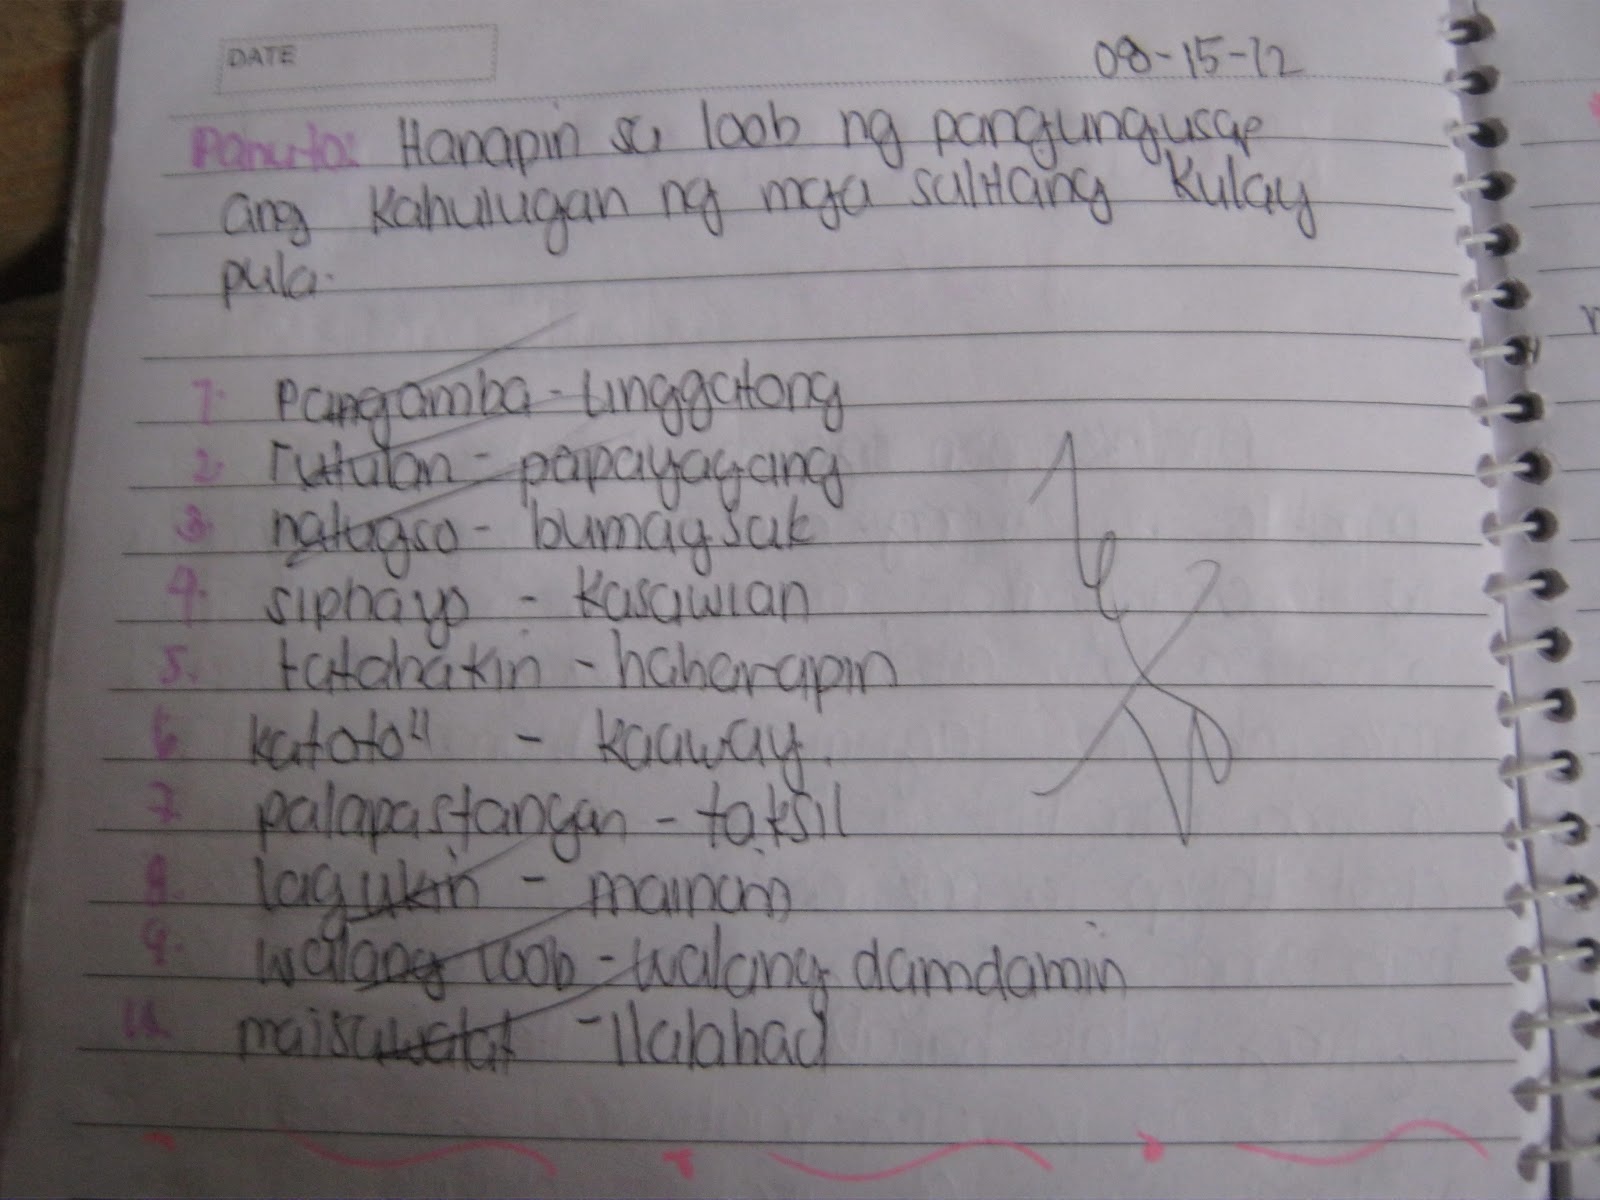 DATE
08-15-12
Panuto: Hanapin sa loob ng pangungusap
ang kahulugan ng mga salitang kulay
pula.
1. Pangamba - linggatong
2. Tutulan - papayagang
3. natugso - bumagsak
4. siphayo - kasawian
5. tatahakin - haharapin
6. katoto" - kaaway.
7. palapastangan - taksil
8. lagukin - mainam
9. walang loob - walang damdamin
maisawalat - ilalahad